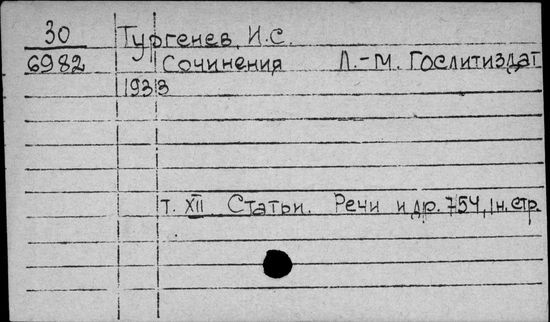 30 Тургенев, И.С.
6982 Сочинения Л.-М. Гослитиздат
1933
т. XII Статьи. Речи и др. 754, 1н. стр.